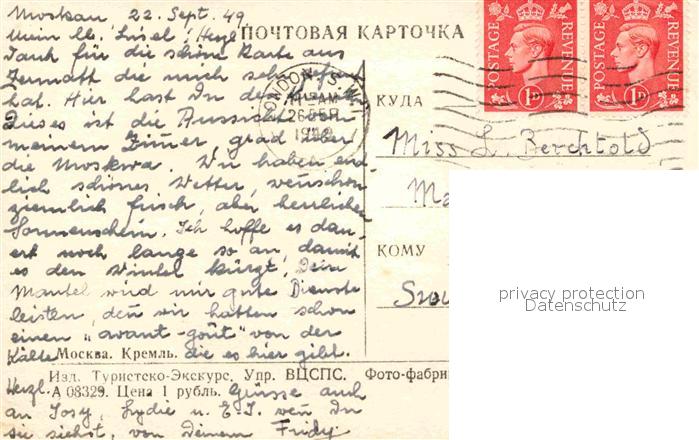 Moskau 22. Sept. 49
Mein lb. Lisel Herzl
ПОЧТОВАЯ КАРТОЧКА
Dank für die schöne Karte aus
Zermatt die mich sehr gefreut
hat. Hier hast Du den
Dieses ist die Aussicht von
meinem Zim̄er, grad über
die Moskwa. Wir haben end-
lich schönes Wetter, wenschon
ziemlich frisch, aber herrlichen
Sonnenschein. Ich hoffe es dau-
ert noch lange so an, damit
es den Winter kürzt. Dein
Mantel wird mir gute Dienste
leisten, den̄ wir hatten schon
einen „avant-goût" von der
Kälte die es hier gibt.
Москва. Кремль.
Изд. Туристско-Экскурс. Упр. ВЦСПС. Фото-фабри
А 08329. Цена 1 рубль.
Herzl. Grüsse auch
an Josy, Lydie u. E.J. wen̄ Du
sie siehst, von Deinem Fridy
POSTAGE REVENUE
1D
POSTAGE REVENUE
1D
LONDON S.W.
AM
26 SEP
1949
КУДА
Miss L. Berchtold
Ma
КОМУ
privacy protection
Datenschutz